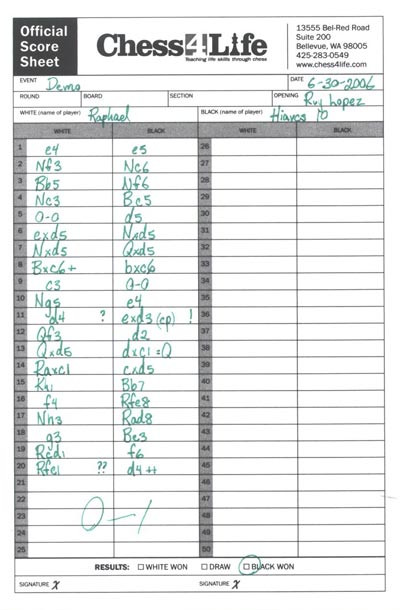 Official Score Sheet
Chess4Life
Teaching life skills through chess
13555 Bel-Red Road
Suite 200
Bellevue, WA 98005
425-283-0549
www.chess4life.com
EVENT Demo DATE 6-30-2006
ROUND BOARD SECTION OPENING Ruy Lopez
WHITE (name of player) Raphael BLACK (name of player) Hiarcs 10
WHITE BLACK WHITE BLACK
1 e4 e5 26
2 Nf3 Nc6 27
3 Bb5 Nf6 28
4 Nc3 Bc5 29
5 0-0 d5 30
6 exd5 Nxd5 31
7 Nxd5 Qxd5 32
8 Bxc6+ bxc6 33
9 c3 0-0 34
10 Ng5 e4 35
11 d4 ? exd3(ep) ! 36
12 Qf3 d2 37
13 Qxd5 dxc1=Q 38
14 Raxc1 cxd5 39
15 Kh1 Bb7 40
16 f4 Rfe8 41
17 Nh3 Rad8 42
18 g3 Be3 43
19 Rcd1 f6 44
20 Rfe1 ?? d4++ 45
21 46
22 47
23 0-1 48
24 49
25 50
RESULTS: WHITE WON DRAW BLACK WON
SIGNATURE X SIGNATURE X